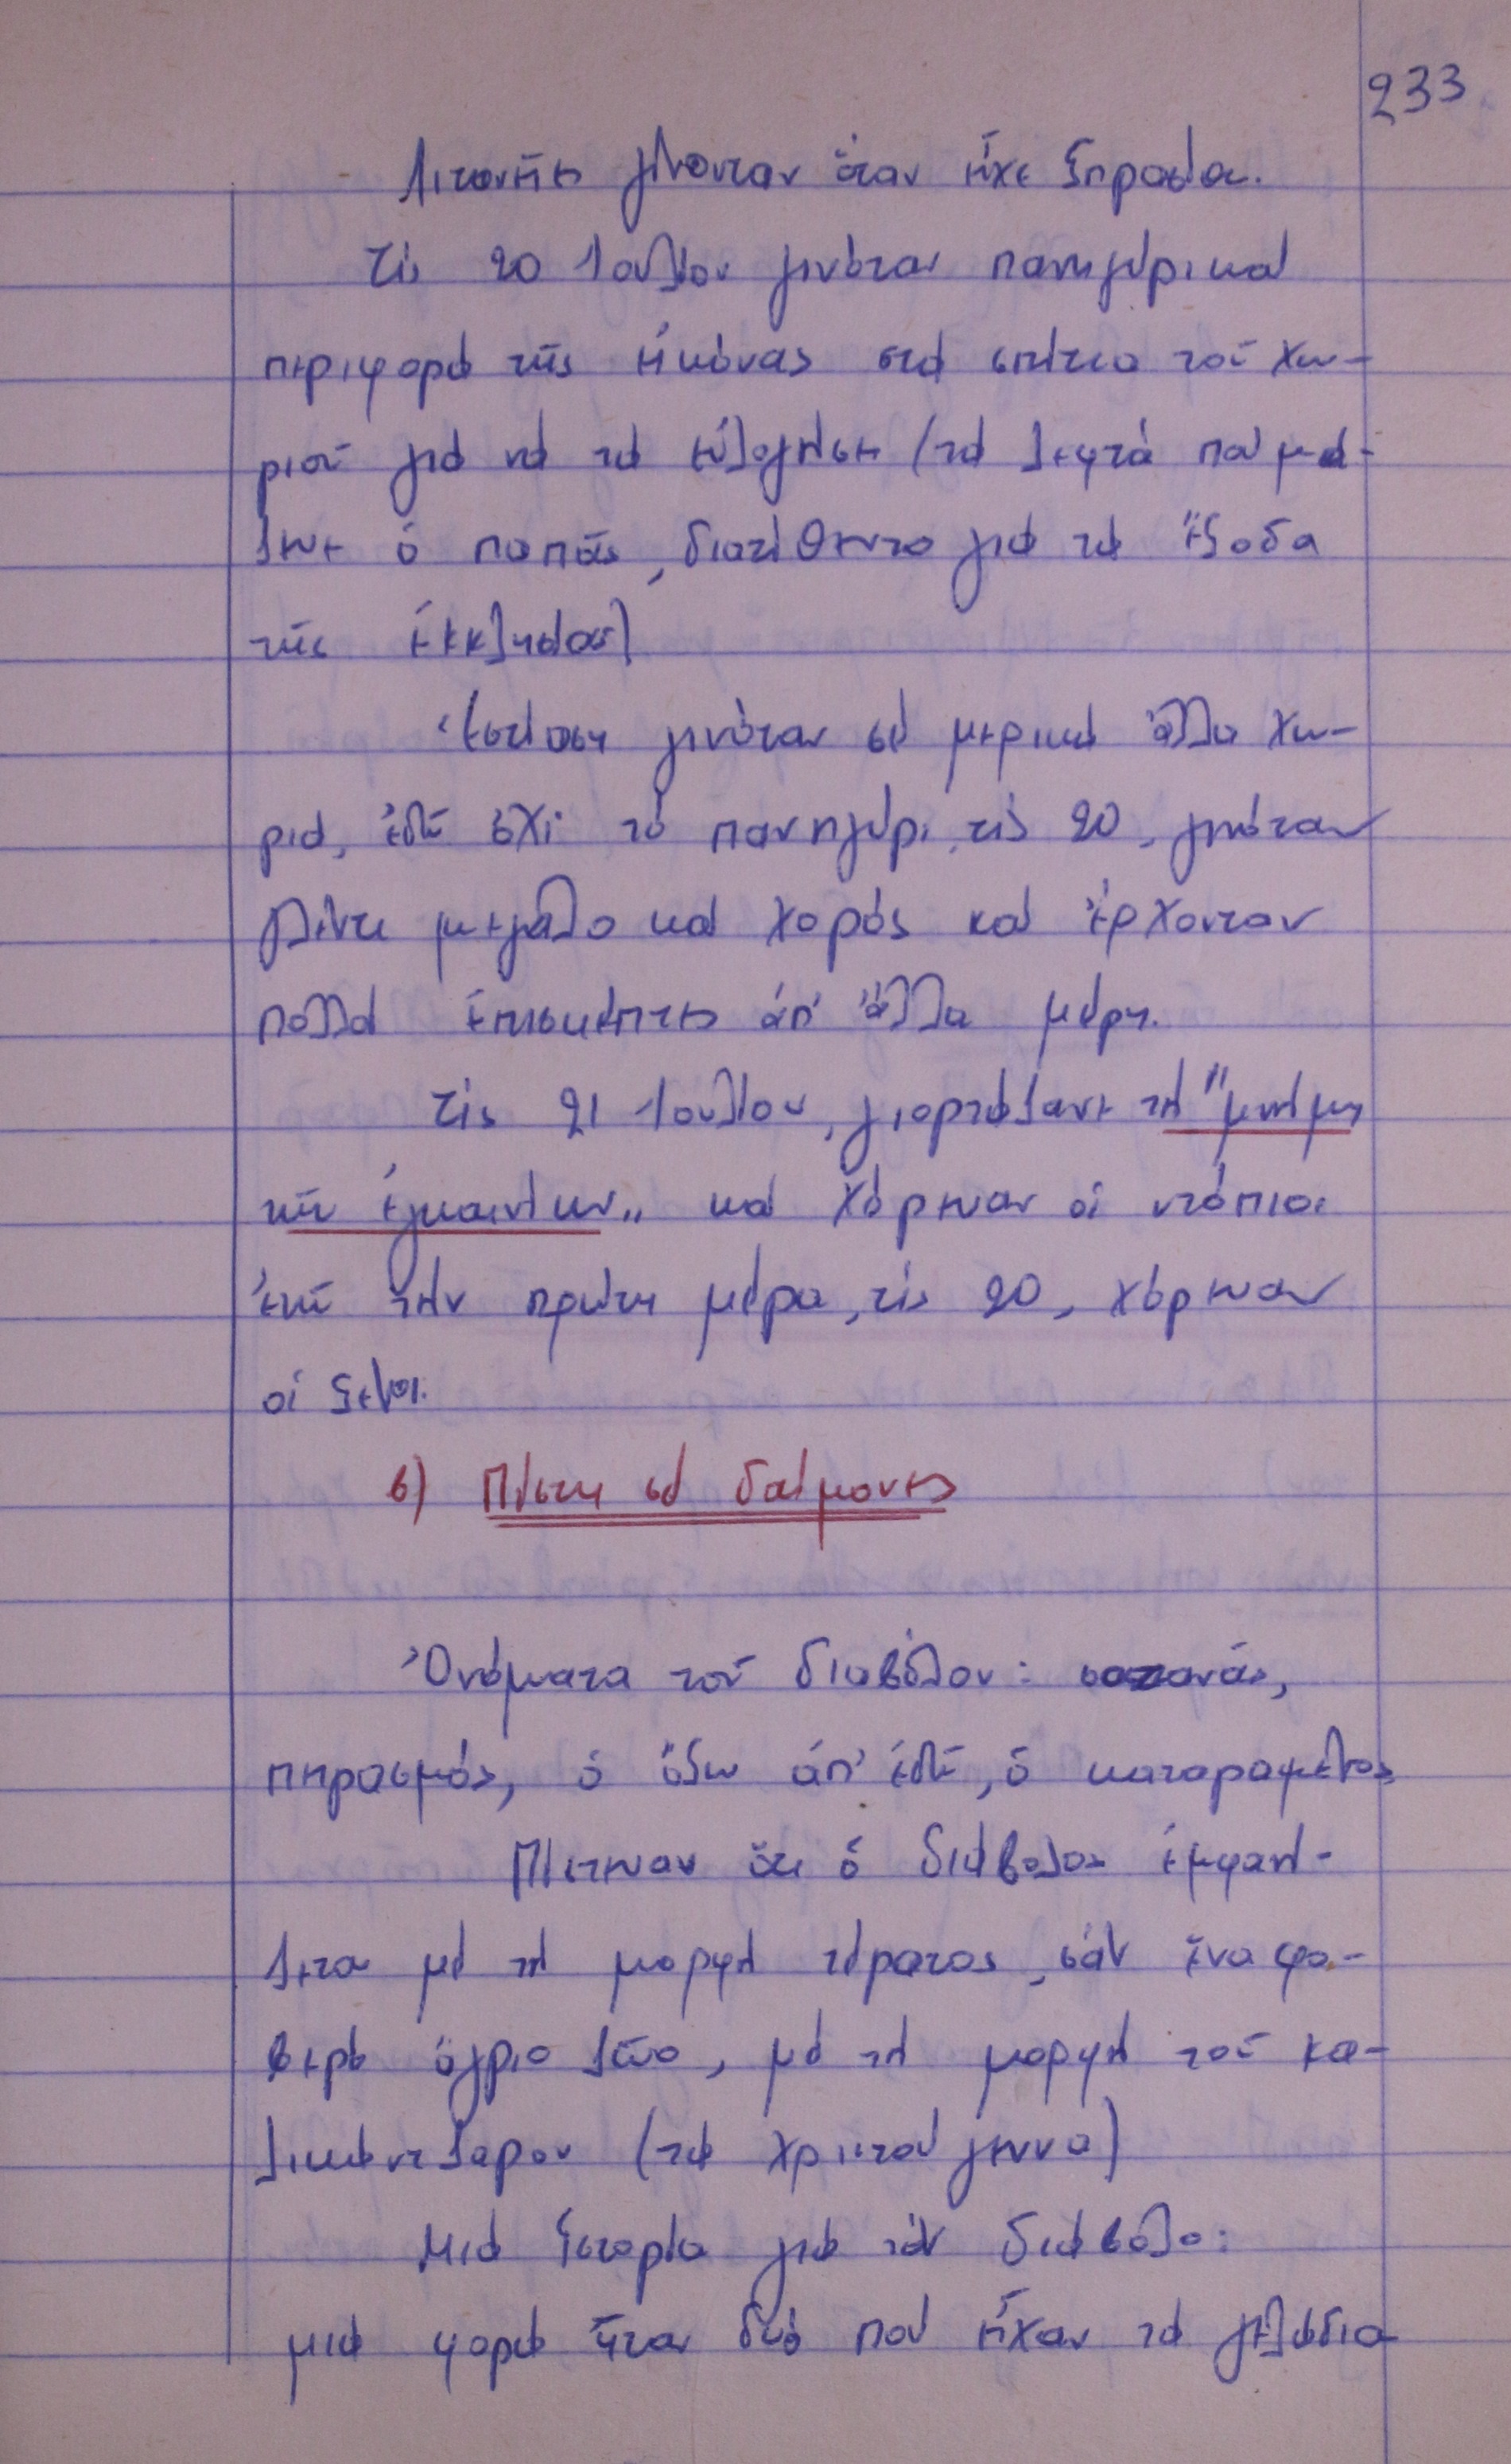 233
Λιτανεῖες γίνονταν ὅταν εἶχε ξηρασία.
Τίς 20 Ἰουλίου γινόταν πανηγυρικά
περιφορά τῆς εἰκόνας στά σπίτια τοῦ χω-
ριοῦ γιά νά τά εὐλογήσει (τά λεφτά πού μά-
ζευε ὁ παπάς, διατίθεντο γιά τά ἔξοδα
τῆς ἐκκλησίας)
Ἑστίαση γινόταν σέ μερικά ἄλλα χω-
ριά, ἐδῶ ὄχι· τό πανηγύρι, τίς 20, γινόταν
γλέντι μεγάλο καί χορός καί ἔρχονταν
πολλοί ἐπισκέπτες ἀπ' ἄλλα μέρη.
Τίς 21 Ἰουλίου, γιορτάζανε τή "μνήμη
τῶν ἐγκαινίων„ καί χόρευαν οἱ ντόπιοι
ἐνῶ τήν πρώτη μέρα, τίς 20, χόρευαν
οἱ ξένοι.
β) Πίστη σέ δαίμονες
Ὀνόματα τοῦ διαβόλου: σατανάς,
πειρασμός, ὁ ὄξω ἀπ' ἐδῶ, ὁ καταραμένος
Πίστευαν ὅτι ὁ διάβολος ἐμφανί-
ζεται μέ τή μορφή τέρατος, σάν ἕνα φο-
βερό ἄγριο ζῶο, μέ τή μορφή τοῦ κα-
λικάντζαρου (τά χριστούγεννα)
Μιά ἱστορία γιά τόν διάβολο:
μιά φορά ἦταν δυό πού εἶχαν τά γελάδια